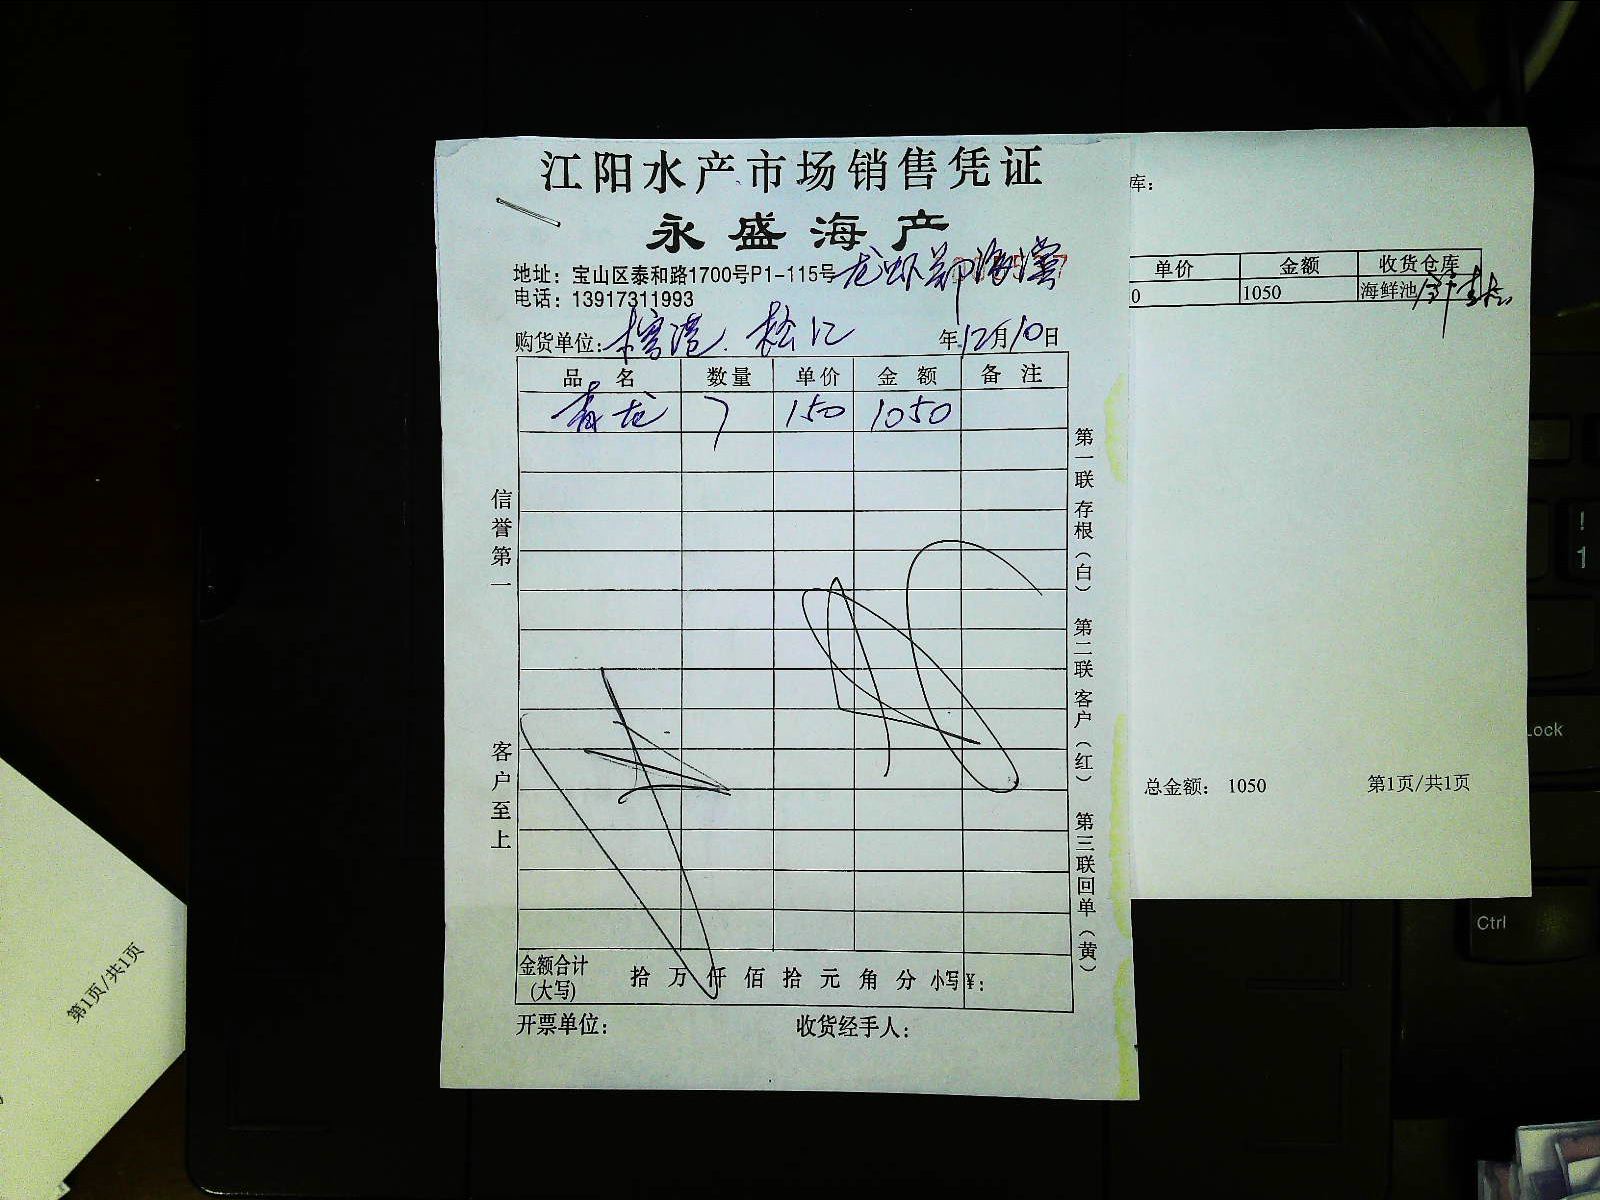 江阳水产市场销售凭证
永盛海产
地址：宝山区泰和路1700号P1-115号 龙虾 郑海棠
电话：13917311993
购货单位： 松江 年12月10日
品 名 数量 单价 金 额 备 注
青龙 7 150 1050
信誉第一
客户至上
第一联存根（白） 第二联客户（红） 第三联回单（黄）
金额合计
(大写)
拾 万 仟 佰 拾 元 角 分 小写¥：
开票单位： 收货经手人：
库：
单价 金额 收货仓库
0 1050 海鲜池
总金额： 1050 第1页/共1页
第1页/共1页
Lock
Ctrl
!
1